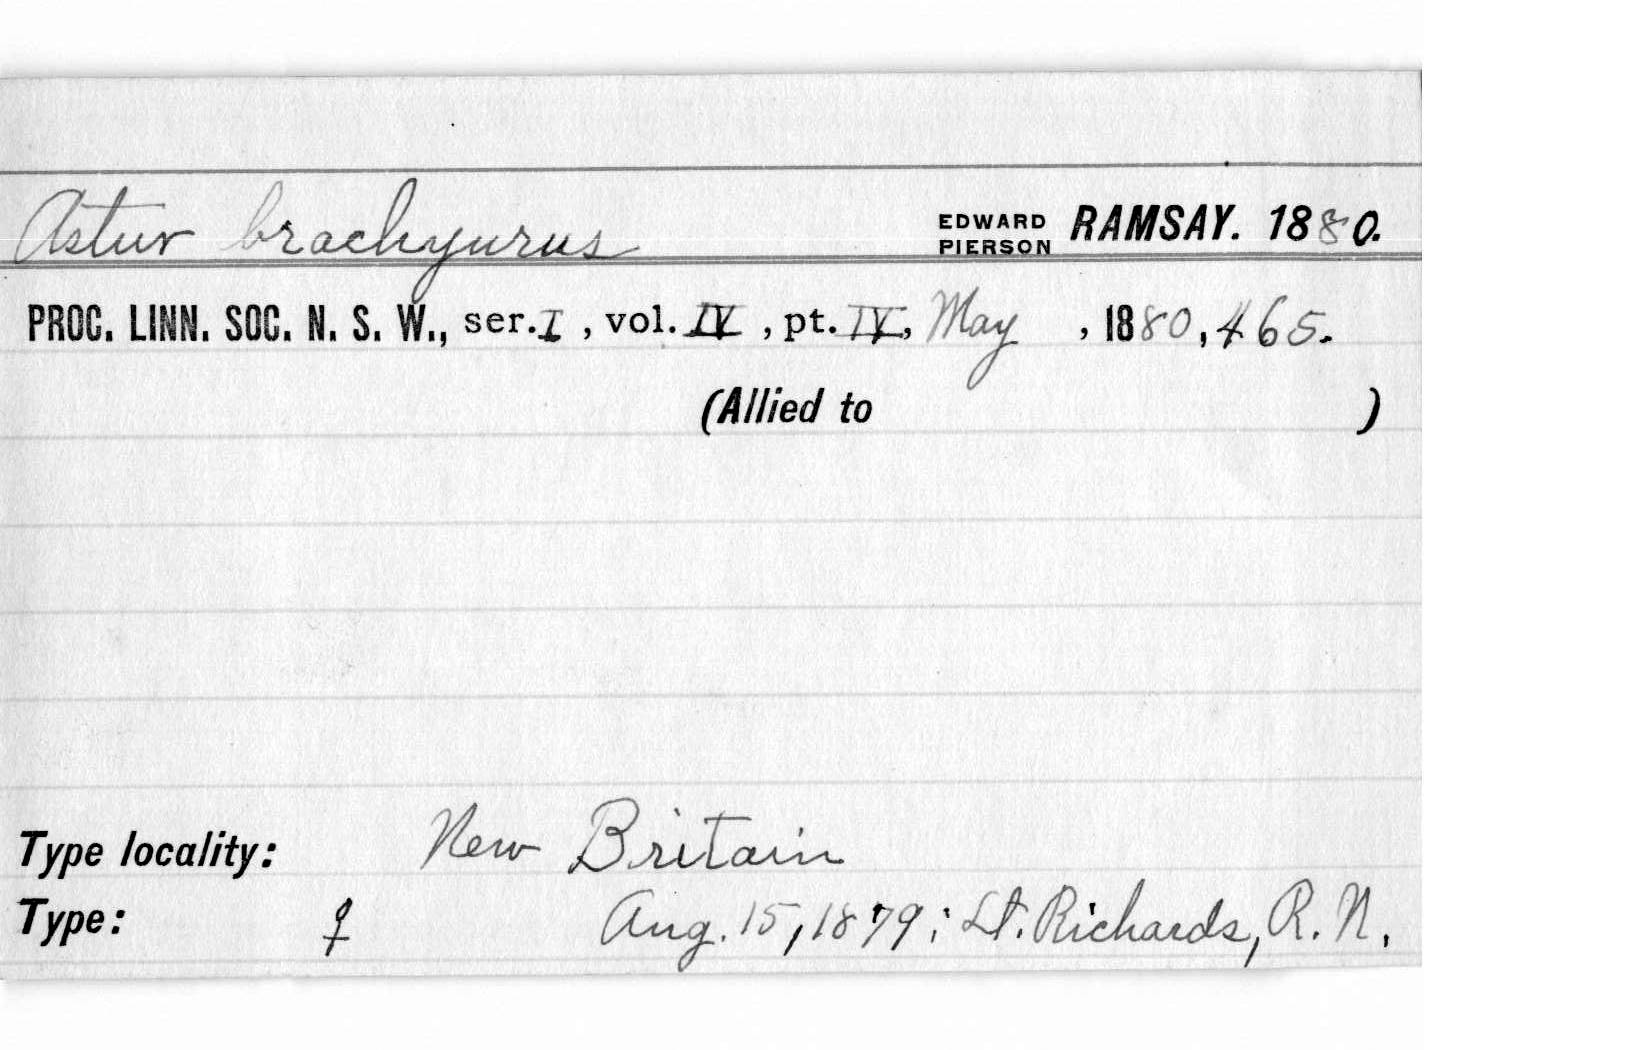 Astur brachyurus EDWARD PIERSON RAMSAY. 1880.
PROC. LINN. SOC. N. S. W., ser. I, vol. IV, pt. IV, May, 1880, 465.
(Allied to )
Type locality: New Britain
Type: ♀ Aug. 15, 1879; Lt. Richards, R. N.